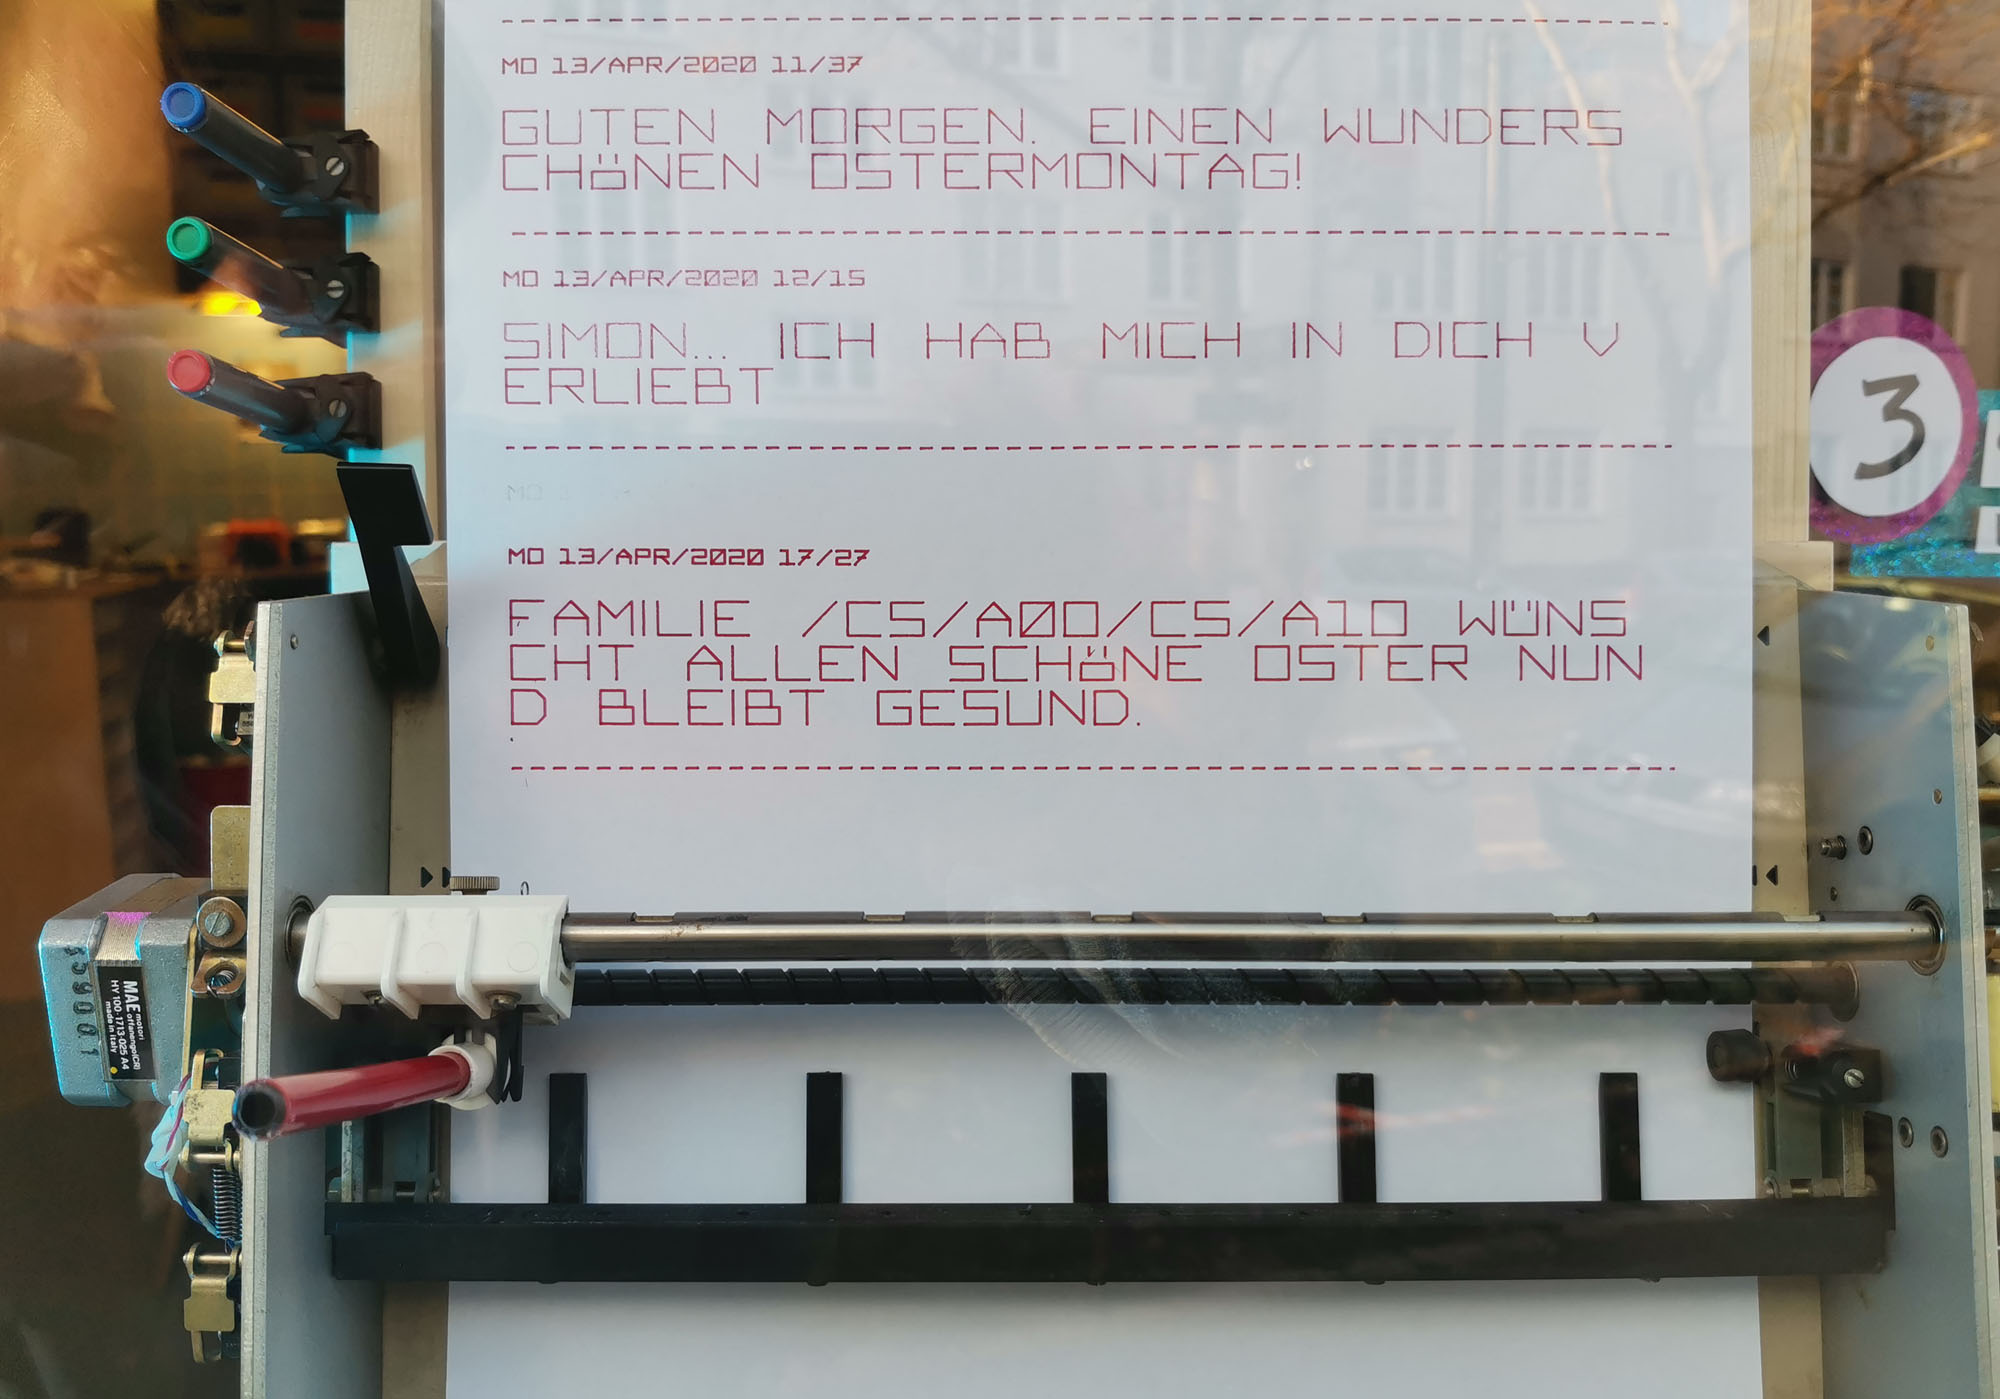 MO 13/APR/2020 11/37
GUTEN MORGEN. EINEN WUNDERS
CHÖNEN OSTERMONTAG!
MO 13/APR/2020 12/15
SIMON... ICH HAB MICH IN DICH V
ERLIEBT
MO
MO 13/APR/2020 17/27
FAMILIE /CS/A00/CS/A10 WÜNS
CHT ALLEN SCHÖNE OSTER NUN
D BLEIBT GESUND.
3
MAE motori
offanengo(CR)
HY 100-1713-025 A4
made in Italy